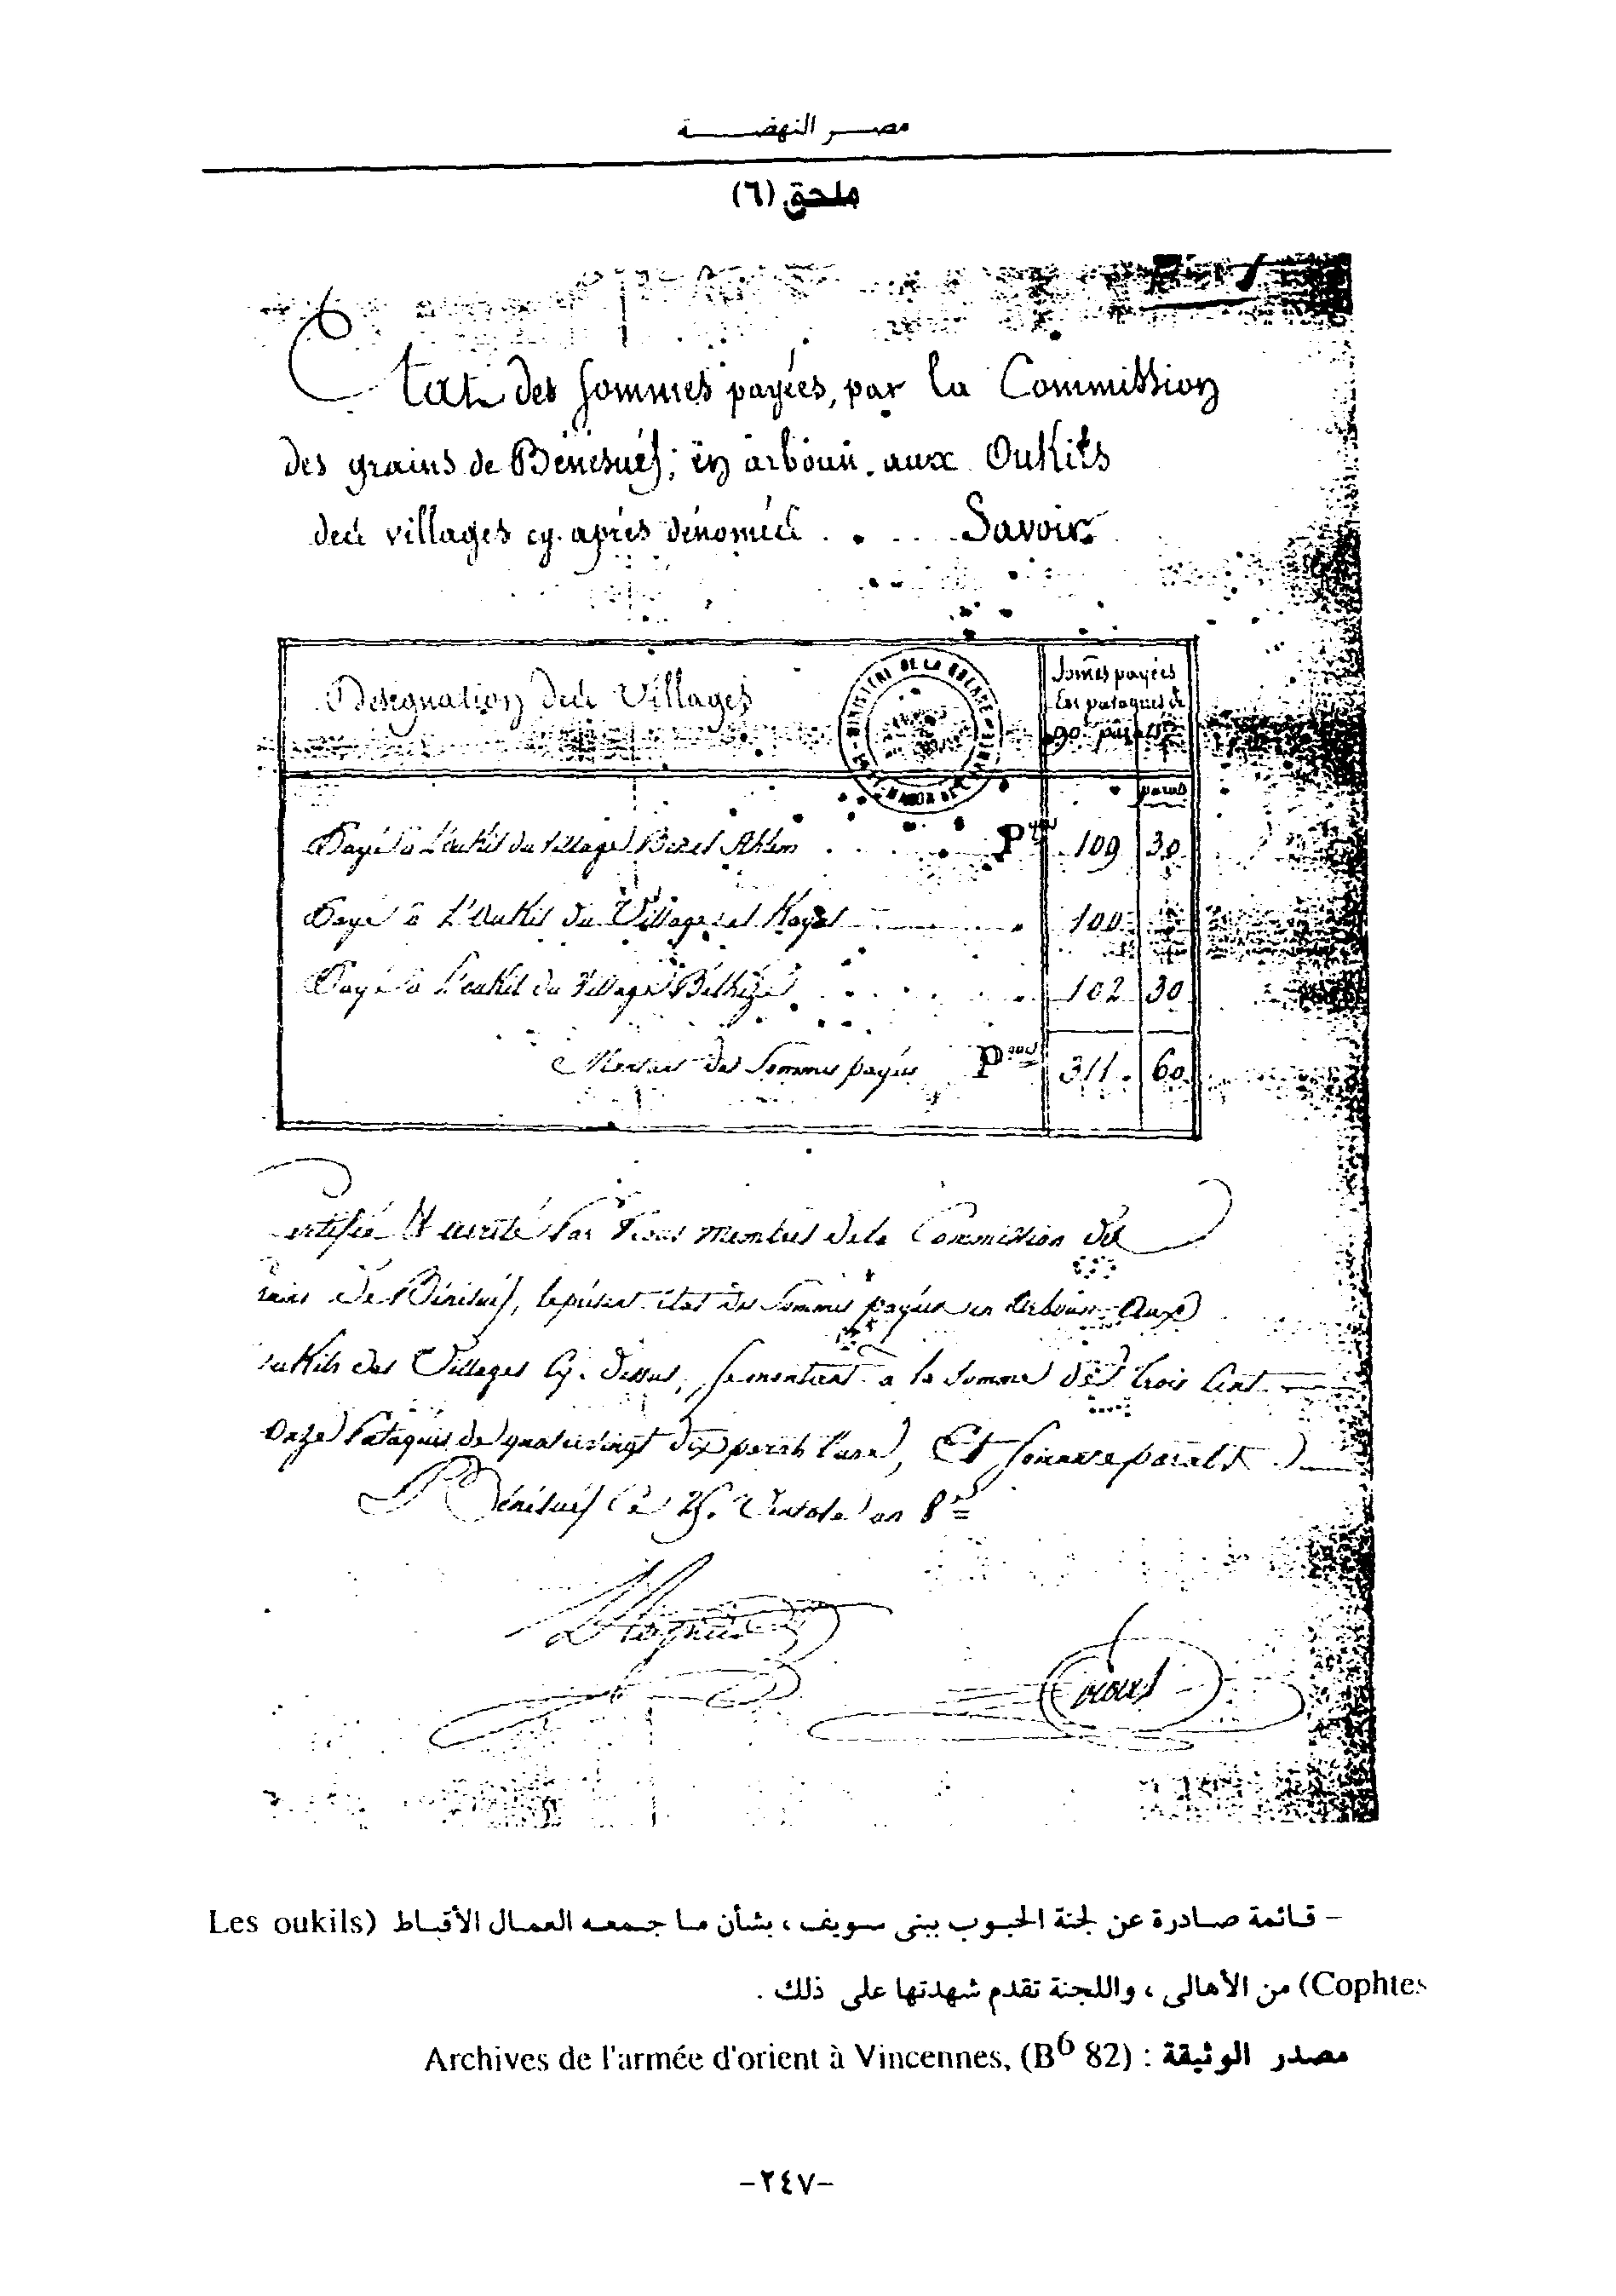 مصر النهضة
ملحق (٦)
Etat des sommes payées, par la Commission
des grains de Bénésuef; en arboun, aux Oukils
des villages cy après dénomés . . . . Savoir
Désignation des Villages
Somes payées
En pataques de
90 parats
MINISTERE DE LA GUERRE
parats
Payé à L'oukil du Village
109 30
Payé à L'oukil du Village el
100
Payé à L'oukil du Village
102 30
des Sommes payées 311. 60
ertifié Et verité Par Nous membres de la Commission des
ains de Bénésuef, le présent état des Sommes payées en Arboun Aux
oukils des Villages Cy. dessus, se montant à la Somme de trois Cent
Onze Pataques de quatrevingt dix parats l'une, Et soixante parats
A Bénésuef Le 25. Ventose an 8
– قائمة صادرة عن لجنة الحبوب ببنى سويف ، بشأن ما جمعه العمال الأقباط (Les oukils
Cophtes) من الأهالى ، واللجنة تقدم شهدتها على ذلك .
مصدر الوثيقة : Archives de l'armée d'orient à Vincennes, (B6 82)
–٢٤٧–